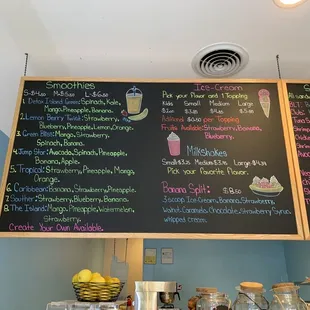 Smoothies
S-$4.50 M-$5.50 L-$6.50
1. Detox Island Green: Spinach, Kale,
Mango, Pineapple, Banana.
2. Lemon Berry Twist: Strawberry,
Blueberry, Pineapple, Lemon, Orange.
3. Green Bliss: Mango, Strawberry,
Spinach, Banana.
4. Jump Star: Avocado, Spinach, Pineapple,
Banana, Apple.
5. Tropical: Strawberry, Pineapple, Mango,
Orange.
6. Caribbean: Banana, Strawberry, Pineapple.
7. Strawberry, Blueberry, Banana.
8. The Island: Mango, Pineapple, Watermelon,
Strawberry.
Create Your Own Available.
Ice-Cream
Pick your Flavor and 1 Topping
Kids Small Medium Large
Additional $0.50 per Topping
Fruits Available: Strawberry, Banana,
Blueberry.
Milkshakes
Small $3.25 Medium Large
Pick your Favorite Flavor.
Banana Split: $8.50
3 Scoop Ice-Cream, Banana, Strawberry,
Walnut, Caramel, Chocolate, Strawberry Syrup,
whipped cream